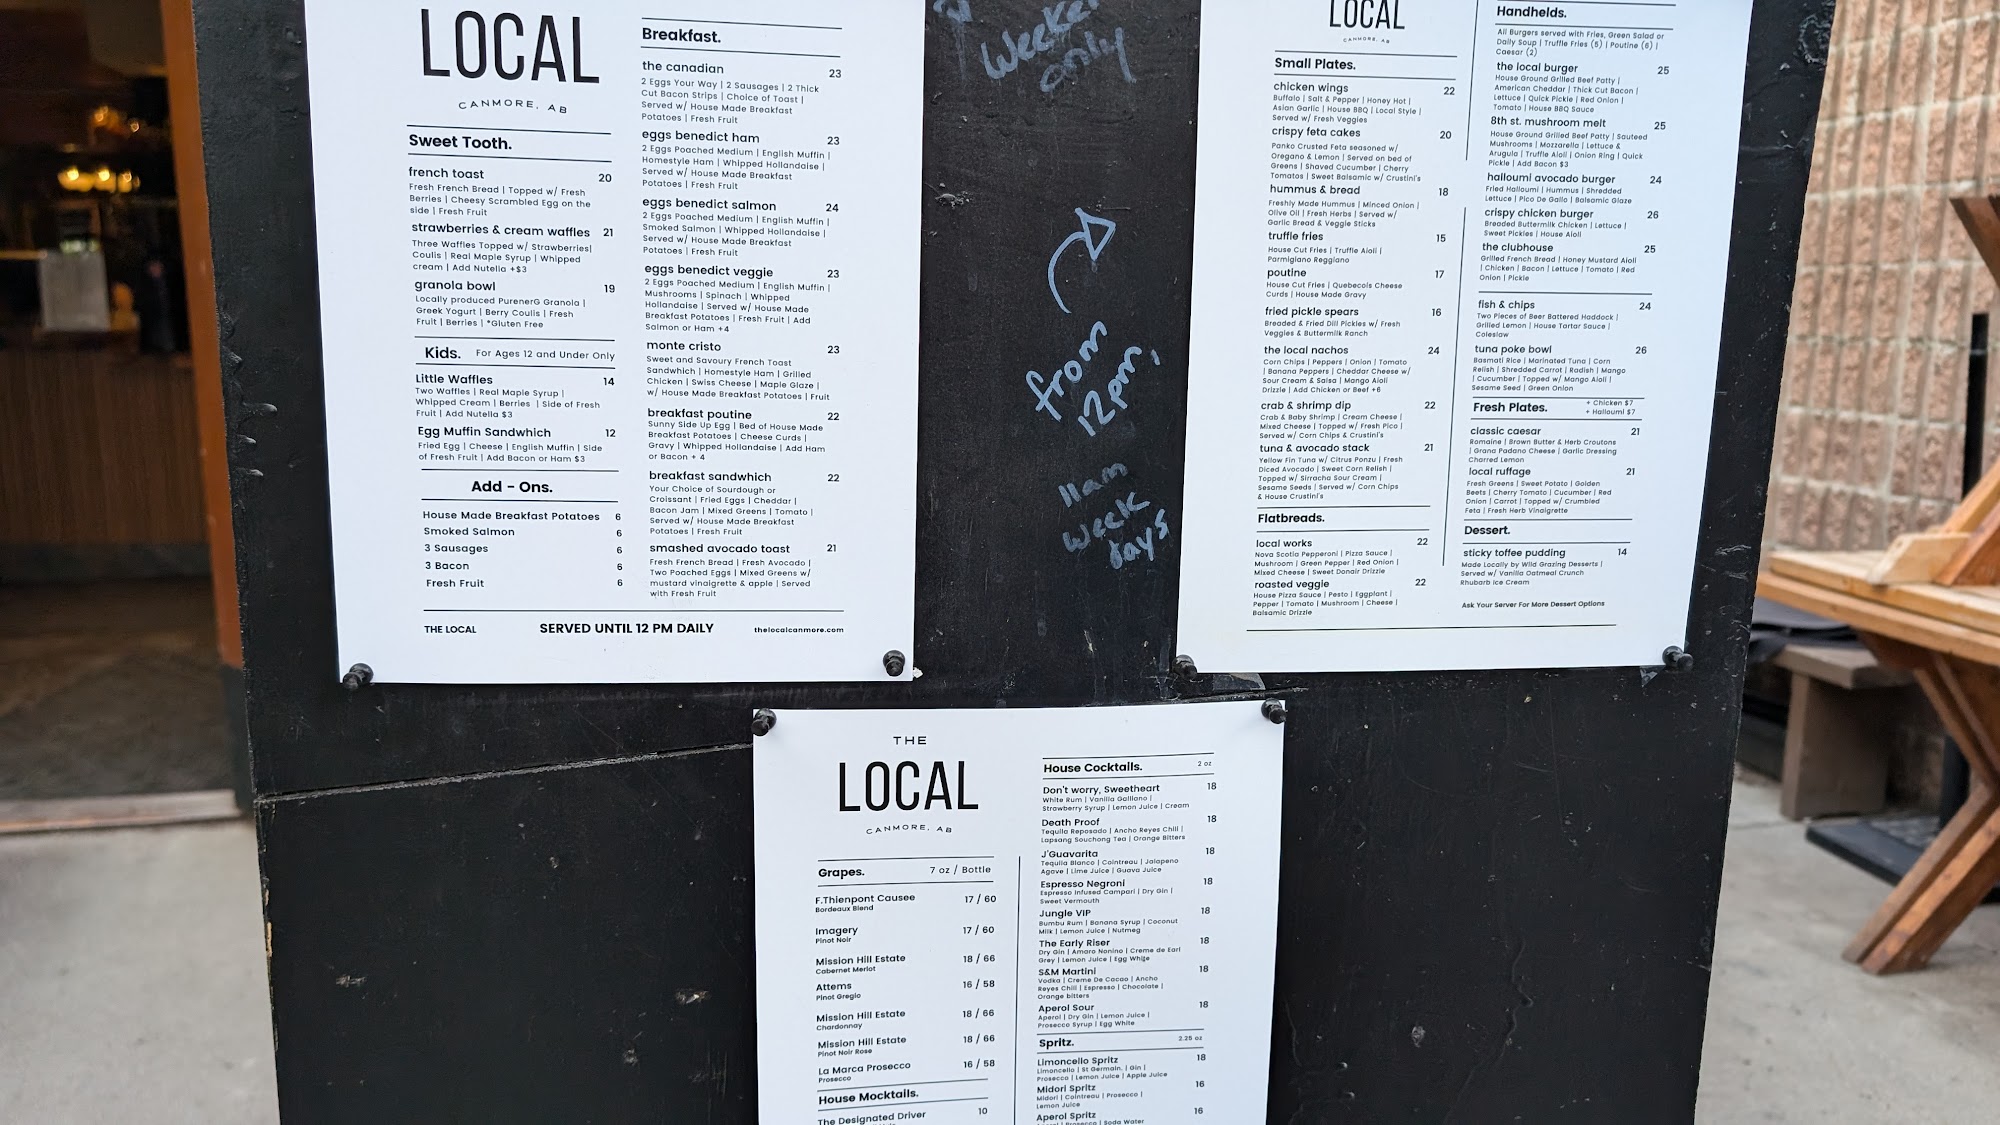 LOCAL
CANMORE, AB
Sweet Tooth.
french toast 20
Fresh French Bread | Topped w/ Fresh
Berries | Cheesy Scrambled Egg on the
side | Fresh Fruit
strawberries & cream waffles 21
Three Waffles Topped w/ Strawberries|
Coulis | Real Maple Syrup | Whipped
cream | Add Nutella +$3
granola bowl 19
Locally produced PurenerG Granola |
Greek Yogurt | Berry Coulis | Fresh
Fruit | Berries | *Gluten Free
Kids. For Ages 12 and Under Only
Little Waffles 14
Two Waffles | Real Maple Syrup |
Whipped Cream | Berries | Side of Fresh
Fruit | Add Nutella $3
Egg Muffin Sandwhich 12
Fried Egg | Cheese | English Muffin | Side
of Fresh Fruit | Add Bacon or Ham $3
Add - Ons.
House Made Breakfast Potatoes 6
Smoked Salmon 6
3 Sausages 6
3 Bacon 6
Fresh Fruit 6
Breakfast.
the canadian 23
2 Eggs Your Way | 2 Sausages | 2 Thick
Cut Bacon Strips | Choice of Toast |
Served w/ House Made Breakfast
Potatoes | Fresh Fruit
eggs benedict ham 23
2 Eggs Poached Medium | English Muffin |
Homestyle Ham | Whipped Hollandaise |
Served w/ House Made Breakfast
Potatoes | Fresh Fruit
eggs benedict salmon 24
2 Eggs Poached Medium | English Muffin |
Smoked Salmon | Whipped Hollandaise |
Served w/ House Made Breakfast
Potatoes | Fresh Fruit
eggs benedict veggie 23
2 Eggs Poached Medium | English Muffin |
Mushrooms | Spinach | Whipped
Hollandaise | Served w/ House Made
Breakfast Potatoes | Fresh Fruit | Add
Salmon or Ham +4
monte cristo 23
Sweet and Savoury French Toast
Sandwhich | Homestyle Ham | Grilled
Chicken | Swiss Cheese | Maple Glaze |
w/ House Made Breakfast Potatoes | Fruit
breakfast poutine 22
Sunny Side Up Egg | Bed of House Made
Breakfast Potatoes | Cheese Curds |
Gravy | Whipped Hollandaise | Add Ham
or Bacon + 4
breakfast sandwhich 22
Your Choice of Sourdough or
Croissant | Fried Eggs | Cheddar |
Bacon Jam | Mixed Greens | Tomato |
Served w/ House Made Breakfast
Potatoes | Fresh Fruit
smashed avocado toast 21
Fresh French Bread | Fresh Avocado |
Two Poached Eggs | Mixed Greens w/
mustard vinaigrette & apple | Served
with Fresh Fruit
THE LOCAL SERVED UNTIL 12 PM DAILY thelocalcanmore.com
only
from
12pm,
11am
week
days
LOCAL
CANMORE, AB
Small Plates.
chicken wings 22
Buffalo | Salt & Pepper | Honey Hot |
Asian Garlic | House BBQ | Local Style |
Served w/ Fresh Veggies
crispy feta cakes 20
Panko Crusted Feta seasoned w/
Oregano & Lemon | Served on bed of
Greens | Shaved Cucumber | Cherry
Tomatos | Sweet Balsamic w/ Crustini's
hummus & bread 18
Freshly Made Hummus | Minced Onion |
Olive Oil | Fresh Herbs | Served w/
Garlic Bread & Veggie Sticks
truffle fries 15
House Cut Fries | Truffle Aioli |
Parmigiano Reggiano
poutine 17
House Cut Fries | Quebecois Cheese
Curds | House Made Gravy
fried pickle spears 16
Breaded & Fried Dill Pickles w/ Fresh
Veggies & Buttermilk Ranch
the local nachos 24
Corn Chips | Peppers | Onion | Tomato
| Banana Peppers | Cheddar Cheese w/
Sour Cream & Salsa | Mango Aioli
Drizzle | Add Chicken or Beef +6
crab & shrimp dip 22
Crab & Baby Shrimp | Cream Cheese |
Mixed Cheese | Topped w/ Fresh Pico |
Served w/ Corn Chips & Crustini's
tuna & avocado stack 21
Yellow Fin Tuna w/ Citrus Ponzu | Fresh
Diced Avocado | Sweet Corn Relish |
Topped w/ Sirracha Sour Cream |
Sesame Seeds | Served w/ Corn Chips
& House Crustini's
Flatbreads.
local works 22
Nova Scotia Pepperoni | Pizza Sauce |
Mushroom | Green Pepper | Red Onion |
Mixed Cheese | Sweet Donair Drizzle
roasted veggie 22
House Pizza Sauce | Pesto | Eggplant |
Pepper | Tomato | Mushroom | Cheese |
Balsamic Drizzle
Handhelds.
All Burgers served with Fries, Green Salad or
Daily Soup | Truffle Fries (5) | Poutine (6) |
Caesar (2)
the local burger 25
House Ground Grilled Beef Patty |
American Cheddar | Thick Cut Bacon |
Lettuce | Quick Pickle | Red Onion |
Tomato | House BBQ Sauce
8th st. mushroom melt 25
House Ground Grilled Beef Patty | Sauteed
Mushrooms | Mozzarella | Lettuce &
Arugula | Truffle Aioli | Onion Ring | Quick
Pickle | Add Bacon $3
halloumi avocado burger 24
Fried Halloumi | Hummus | Shredded
Lettuce | Pico De Gallo | Balsamic Glaze
crispy chicken burger 26
Breaded Buttermilk Chicken | Lettuce |
Sweet Pickles | House Aioli
the clubhouse 25
Grilled French Bread | Honey Mustard Aioli
| Chicken | Bacon | Lettuce | Tomato | Red
Onion | Pickle
fish & chips 24
Two Pieces of Beer Battered Haddock |
Grilled Lemon | House Tartar Sauce |
Coleslaw
tuna poke bowl 26
Basmati Rice | Marinated Tuna | Corn
Relish | Shredded Carrot | Radish | Mango
| Cucumber | Topped w/ Mango Aioli |
Sesame Seed | Green Onion
Fresh Plates. + Chicken $7
+ Halloumi $7
classic caesar 21
Romaine | Brown Butter & Herb Croutons
| Grana Padano Cheese | Garlic Dressing
Charred Lemon
local ruffage 21
Fresh Greens | Sweet Potato | Golden
Beets | Cherry Tomato | Cucumber | Red
Onion | Carrot | Topped w/ Crumbled
Feta | Fresh Herb Vinaigrette
Dessert.
sticky toffee pudding 14
Made Locally by Wild Grazing Desserts |
Served w/ Vanilla Oatmeal Crunch
Rhubarb Ice Cream
Ask Your Server For More Dessert Options
THE
LOCAL
CANMORE, AB
Grapes. 7 oz / Bottle
F.Thienpont Causee 17 / 60
Bordeaux Blend
Imagery 17 / 60
Pinot Noir
Mission Hill Estate 18 / 66
Cabernet Merlot
Attems 16 / 58
Pinot Gregio
Mission Hill Estate 18 / 66
Chardonnay
Mission Hill Estate 18 / 66
Pinot Noir Rose
La Marca Prosecco 16 / 58
Prosecco
House Mocktails.
The Designated Driver 10
House Cocktails. 2 oz
Don't worry, Sweetheart 18
White Rum | Vanilla Galliano |
Strawberry Syrup | Lemon Juice | Cream
Death Proof 18
Tequila Reposado | Ancho Reyes Chili |
Lapsang Souchong Tea | Orange Bitters
J'Guavarita 18
Tequila Blanco | Cointreau | Jalapeno
Agave | Lime Juice | Guava Juice
Espresso Negroni 18
Espresso Infused Campari | Dry Gin |
Sweet Vermouth
Jungle VIP 18
Bumbu Rum | Banana Syrup | Coconut
Milk | Lemon Juice | Nutmeg
The Early Riser 18
Dry Gin | Amaro Nonino | Creme de Earl
Grey | Lemon Juice | Egg White
S&M Martini 18
Vodka | Creme De Cacao | Ancho
Reyes Chili | Espresso | Chocolate |
Orange bitters
Aperol Sour 18
Aperol | Dry Gin | Lemon Juice |
Prosecco Syrup | Egg White
Spritz. 2.25 oz
Limoncello Spritz 18
Limoncello | St Germain. | Gin |
Prosecco | Lemon Juice | Apple Juice
Midori Spritz 16
Midori | Cointreau | Prosecco |
Lemon Juice
Aperol Spritz 16
Aperol | Prosecco | Soda Water